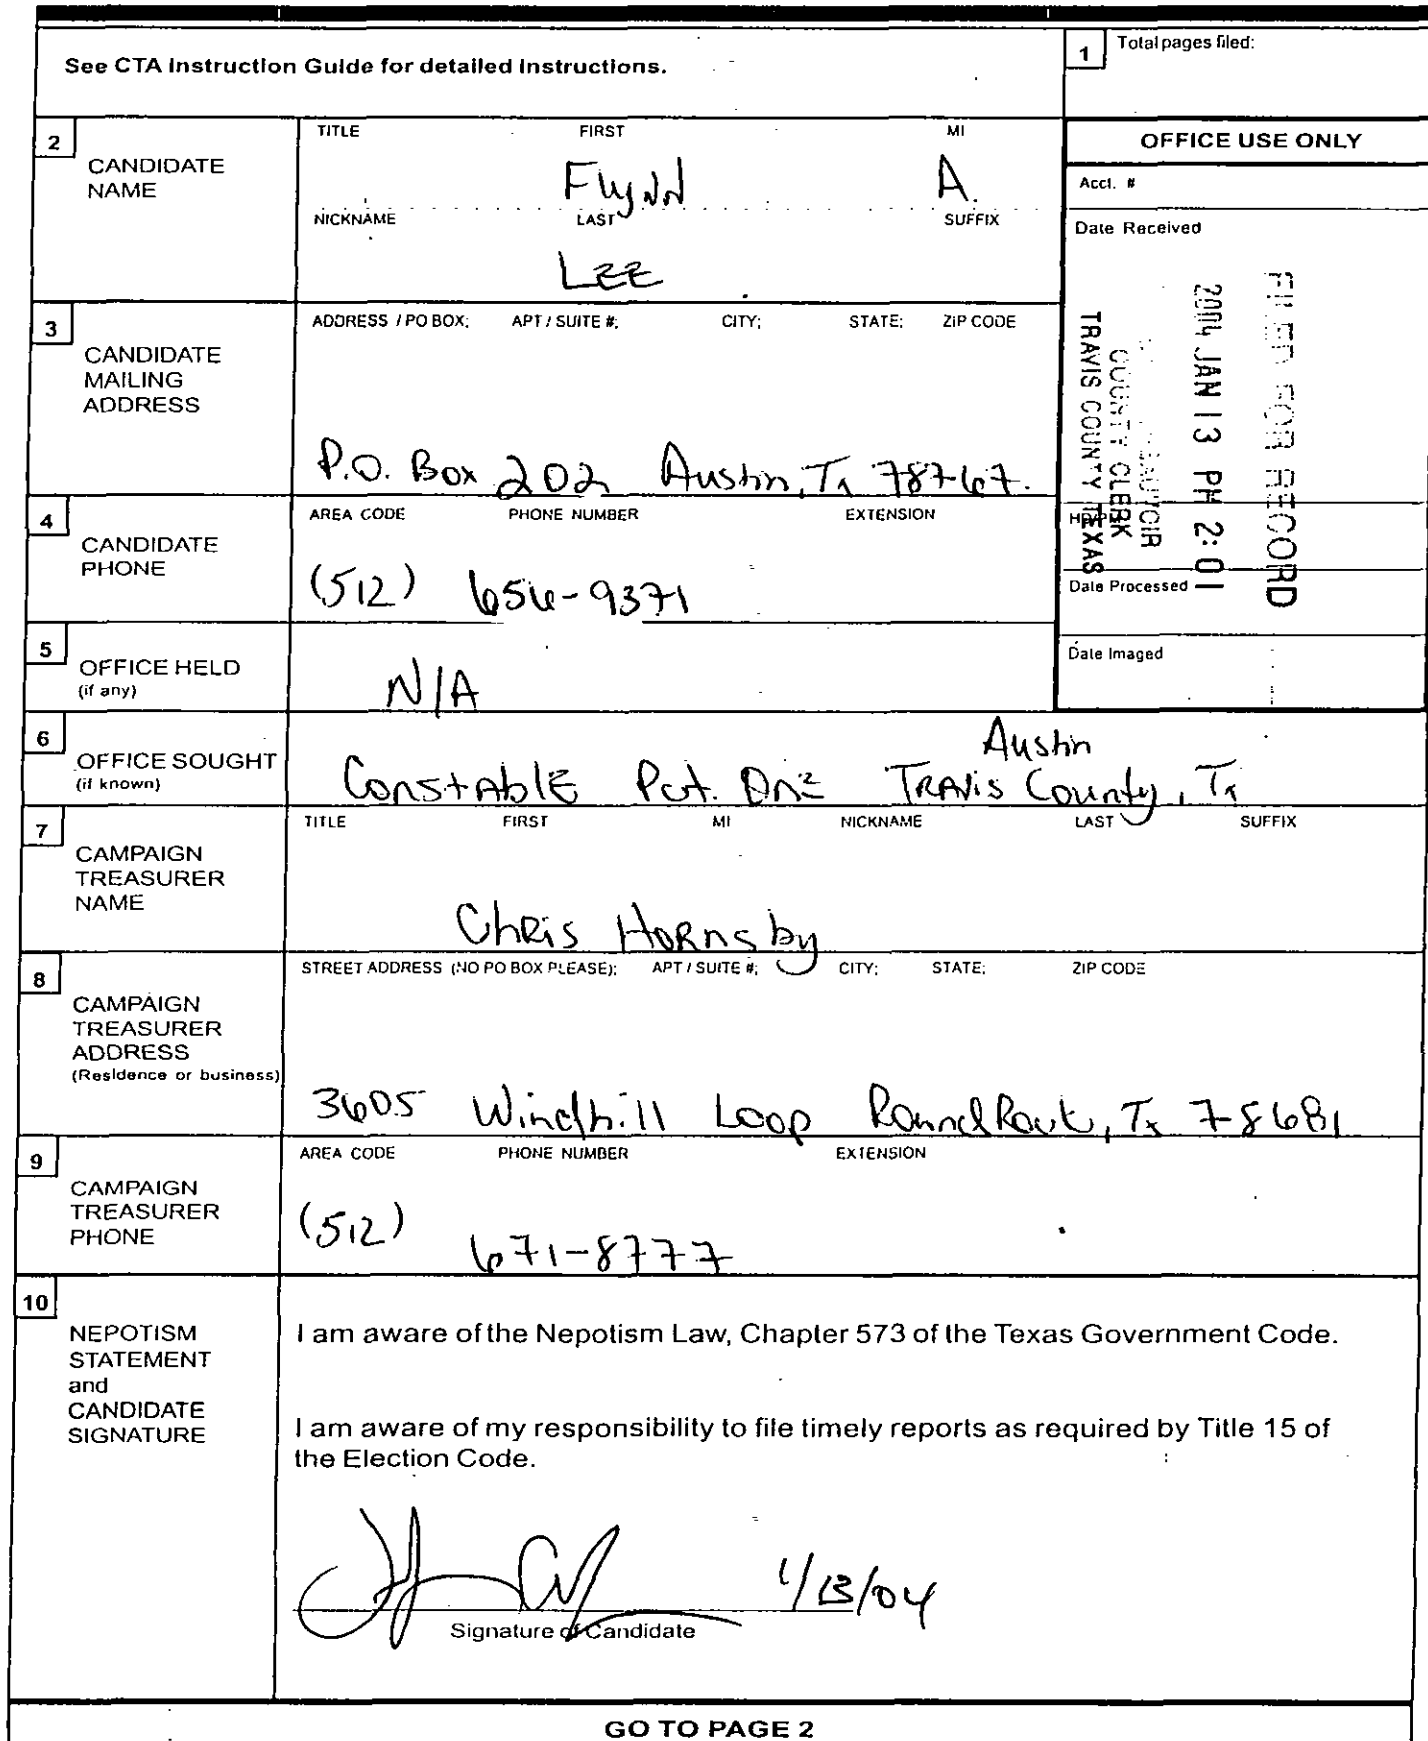 See CTA Instruction Guide for detailed instructions.
1 Total pages filed:
2 CANDIDATE NAME
TITLE FIRST MI
Flynn A.
NICKNAME LAST SUFFIX
LEE
OFFICE USE ONLY
Acct. #
Date Received
FILED FOR RECORD
2004 JAN 13 PM 2:01
COUNTY CLERK
TRAVIS COUNTY TEXAS
Date Processed
Date Imaged
3 CANDIDATE MAILING ADDRESS
ADDRESS / PO BOX; APT / SUITE #; CITY; STATE; ZIP CODE
P.O. Box 202 Austin, Tx 78767.
4 CANDIDATE PHONE
AREA CODE PHONE NUMBER EXTENSION
(512) 656-9371
5 OFFICE HELD
(if any)
N/A
6 OFFICE SOUGHT
(if known)
Austin
Constable Pct. One Travis County, Tx
7 CAMPAIGN TREASURER NAME
TITLE FIRST MI NICKNAME LAST SUFFIX
Chris Hornsby
8 CAMPAIGN TREASURER ADDRESS
(Residence or business)
STREET ADDRESS (NO PO BOX PLEASE); APT / SUITE #; CITY; STATE; ZIP CODE
3605 Windhill Loop Round Rock, Tx 78681
9 CAMPAIGN TREASURER PHONE
AREA CODE PHONE NUMBER EXTENSION
(512) 671-8777
10 NEPOTISM STATEMENT and CANDIDATE SIGNATURE
I am aware of the Nepotism Law, Chapter 573 of the Texas Government Code.
I am aware of my responsibility to file timely reports as required by Title 15 of
the Election Code.
1/13/04
Signature of Candidate
GO TO PAGE 2